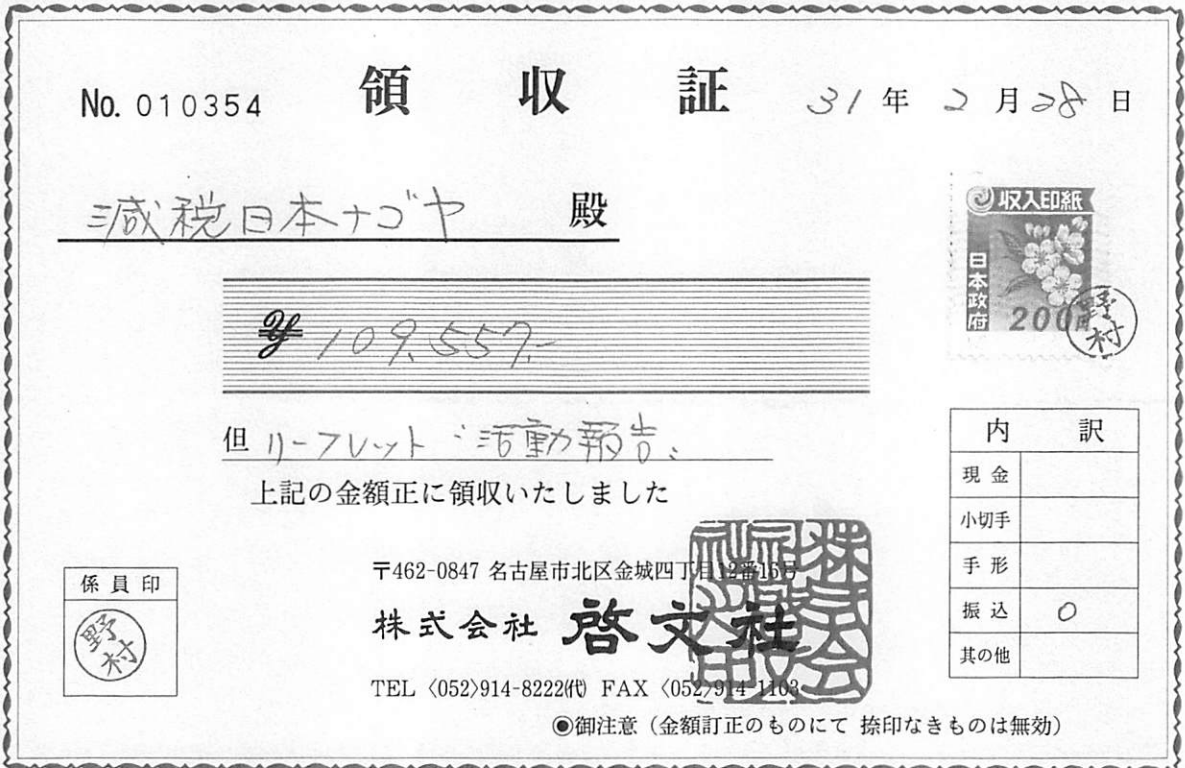 No. 010354 領収証 31年2月28日
減税日本ナゴヤ 殿
収入印紙
日本政府
200円
野村
¥109,557.-
但 リーフレット "活動報告"
上記の金額正に領収いたしました
内訳
現金
小切手
手形
振込 ○
其の他
係員印
野村
〒462-0847 名古屋市北区金城四丁目12番15号
株式会社 啓文社
TEL〈052〉914-8222㈹ FAX〈052〉914-1103
◉御注意(金額訂正のものにて 捺印なきものは無効)